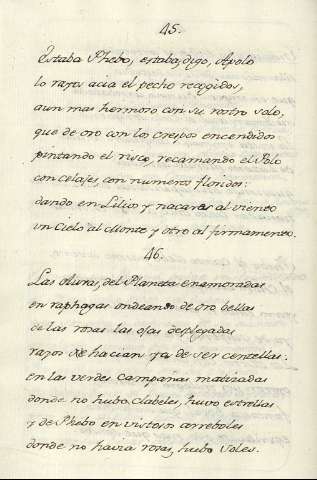 45.
Estaba Phebo, estaba, digo, Apolo
lo rayos acia el pecho recogidos,
aun mas hermoso con su rostro solo,
que de oro con los crespos encendidos
pintando el risco, recamando el Polo
con celajes, con numeros floridos:
dando en Lilios y nacares al viento
un Cielo al Monte y otro al firmamento.
46.
Las Auras, del Planeta enamoradas
en raphagas ondeando de oro bellas
de las rosas las ojas desplegadas
rayos hacian ya de ser centellas.
en las verdes campañas matizadas
donde no hubo Clabeles, huvo estrellas
y de Phebo en vistosos arreboles
donde no havia rosas, hubo soles.